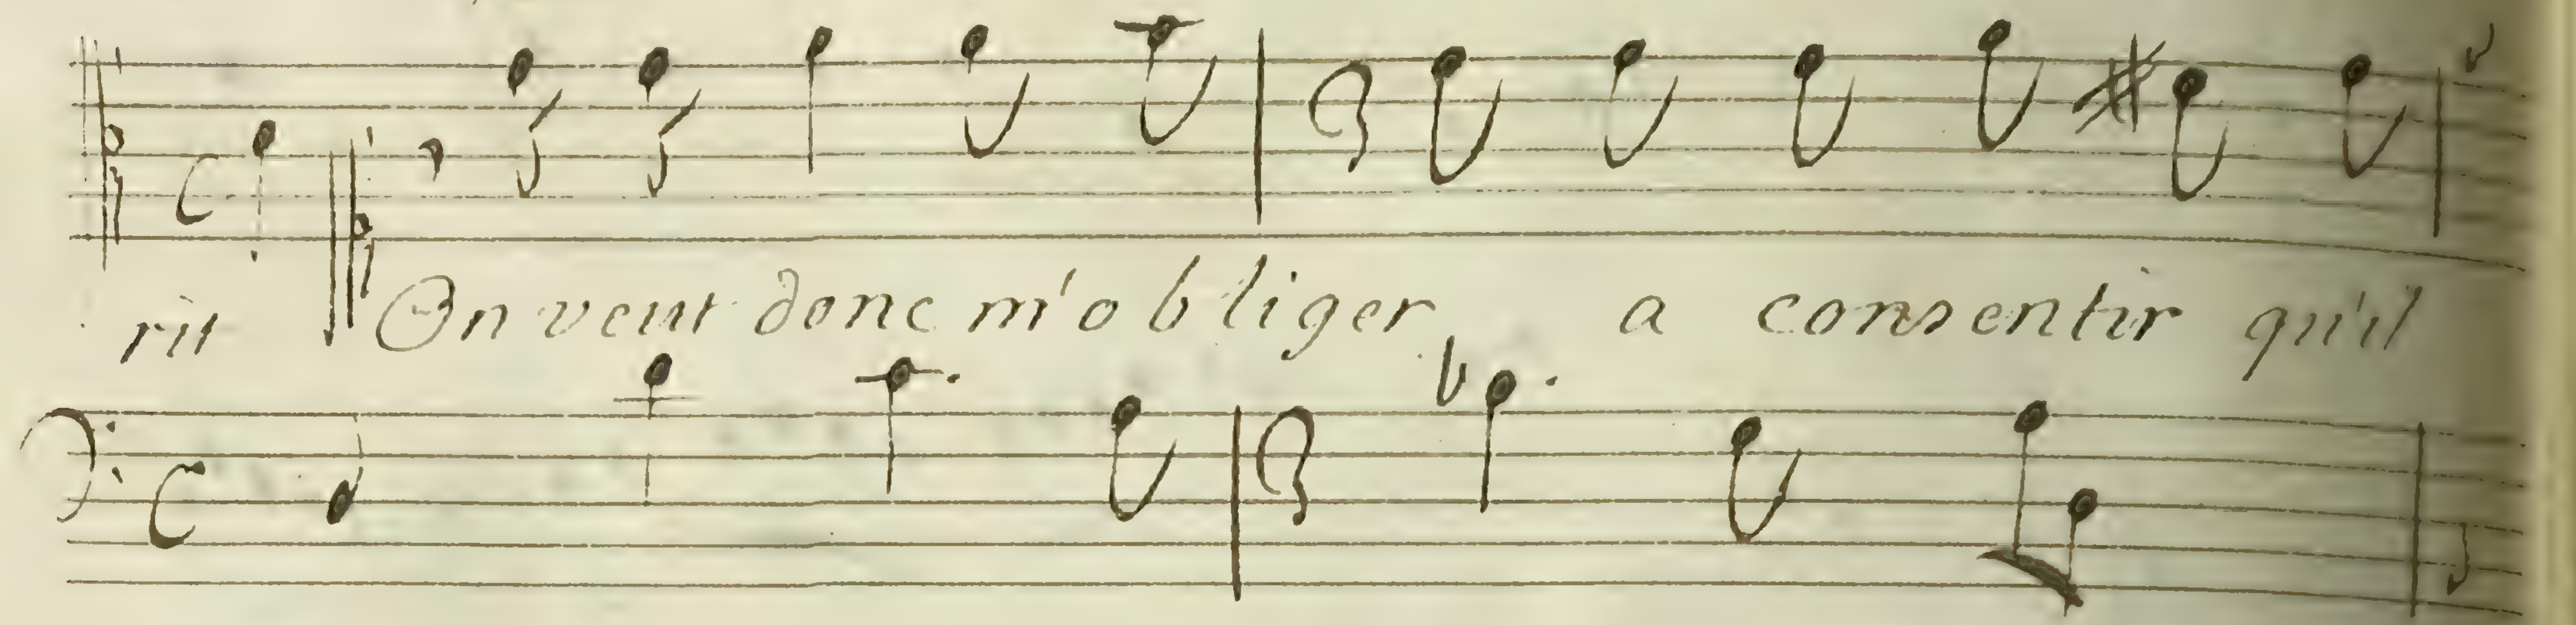 rit On veut donc m'obliger a consentir qu'il